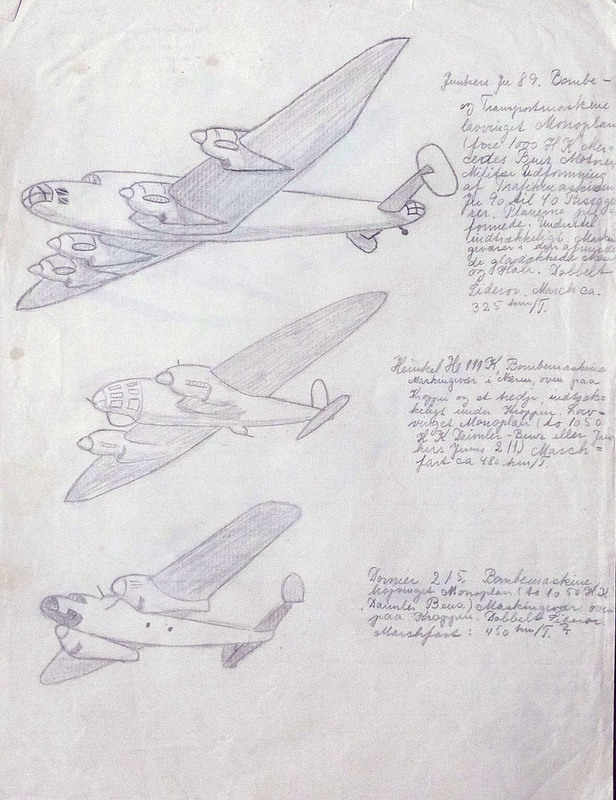 Junkers Ju 89. Bombe-
og Transportmaskine
lavvinget Monoplan
(fire 1000 H K, Mer-
cedes Benz Motorer
Militær udformning
af Trafikmaskinen
Ju 90 til 40 Passage
rer. Planerne
formede. Understel
indtrækkeligt. Maskin
geværer i den afrunde
de glasdækkede Næse
og Hale. Dobbelt
Sideror. March ca.
325 km/T.
Heinkel He 111 K, Bombemaskine
Maskingevær i Næsen, oven paa
Kroppen og et nedfr. indtræk-
keligt under Kroppen. Lav-
vinget Monoplan (to 1050
H K Daimler-Benz eller Jun
kers Jumo 211) March=
fart ca 480 km/T.
Dornier 215. Bombemaskine,
højvinget Monoplan (to 1050 H K
Daimler Benz) Maskingevær oven
paa Kroppen. Dobbelt Sideror
Marchfart: 450 km/T. ?